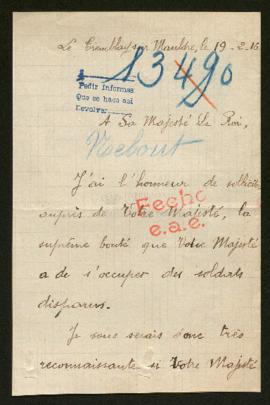 Le Tremblay sur Mauldre, le 19-2-16
13490
Pedir informes
Que se haga asi
Devolver
A Sa Majesté Le Roi,
J'ai l'honneur de sollicit
auprès de Votre Majesté, la
Fecho
e.a.e.
suprême bonté que Votre Majesté
a de s'occuper des soldats
disparus.
Je vous serais donc très
reconnaissante si Votre Majesté